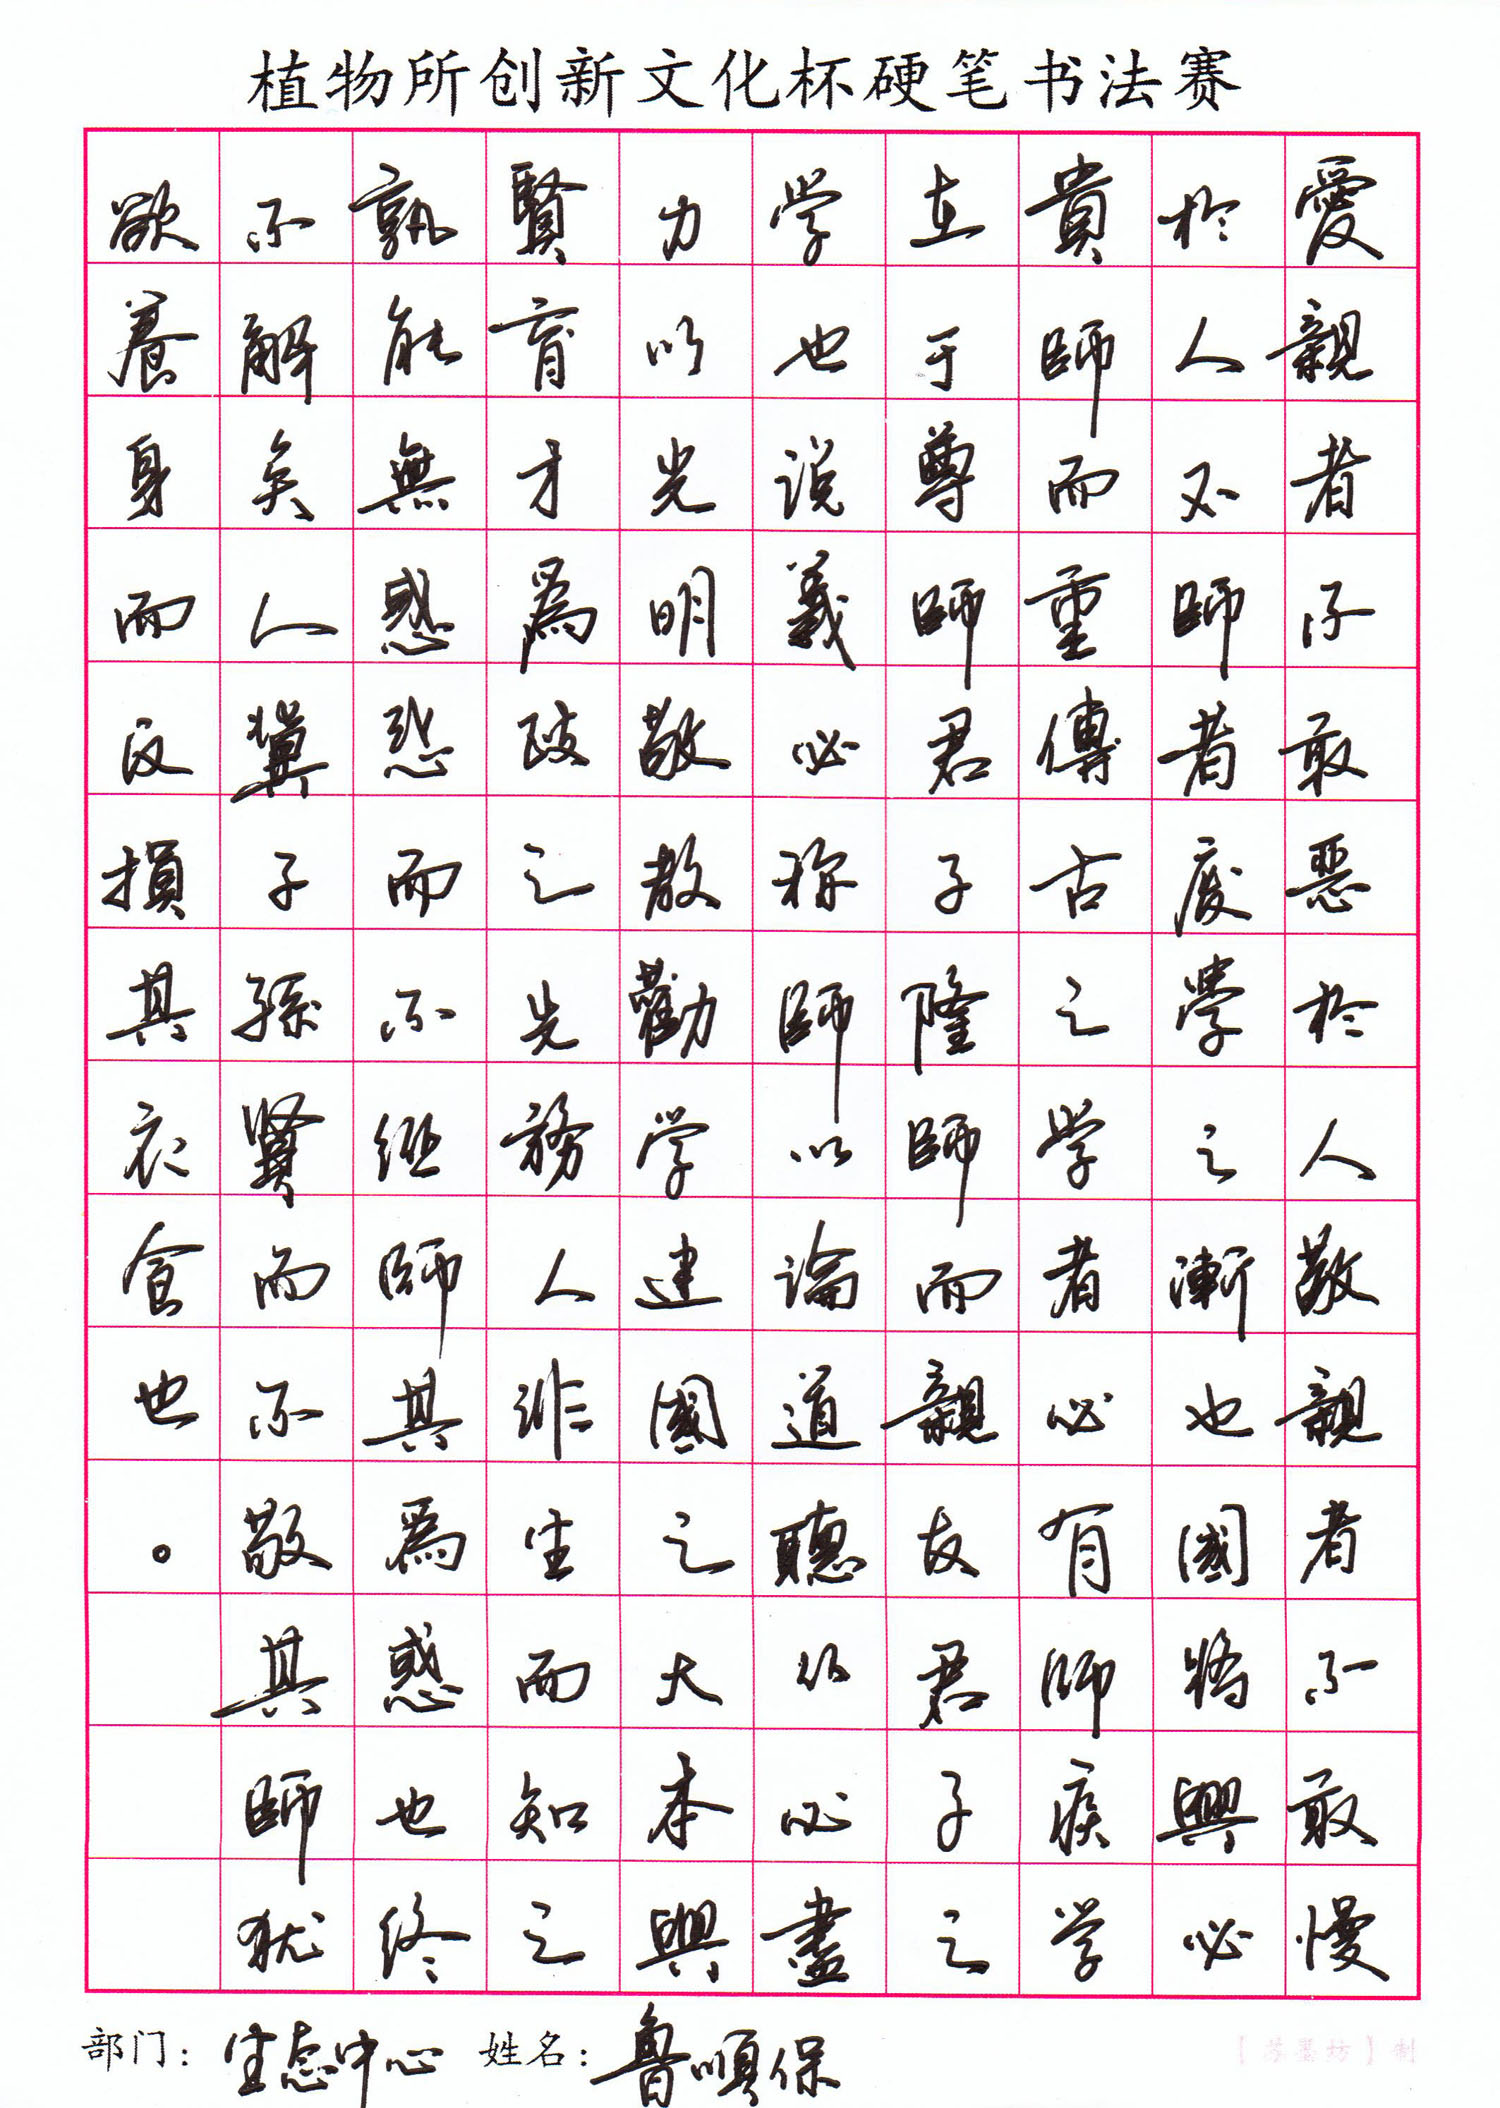 植物所创新文化杯硬笔书法赛
愛親者不敢惡於人敬親者不敢慢
於人不師者廢學之漸也國將興必
貴師而重傅古之學者必有師疾學
在于尊師君子隆師而親友君子之
学也说義必称師以論道聽從必盡
力以光明敬教勸学建國之大本與
賢育才為政之先務人非生而知之
孰能無惑惑而不從師其為惑也終
不解矣人冀子孫賢而不敬其師犹
欲養身而反損其衣食也。
部门：生态中心 姓名：魯順保
【苏墨坊】制